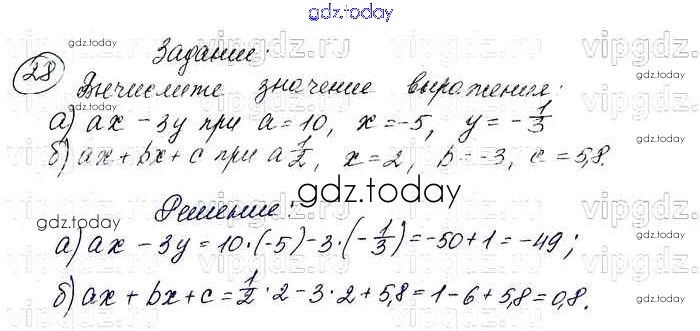 gdz.today
28
Задание:
Вычислите значение выражения:
а) ax - 3y при a = 10, x = -5, y = -1/3
б) ax + bx + c при a 1/2, x = 2, b = -3, c = 5,8.
gdz.today
Решение:
а) ax - 3y = 10 · (-5) - 3 · (-1/3) = -50 + 1 = -49;
б) ax + bx + c = 1/2 · 2 - 3 · 2 + 5,8 = 1 - 6 + 5,8 = 0,8.